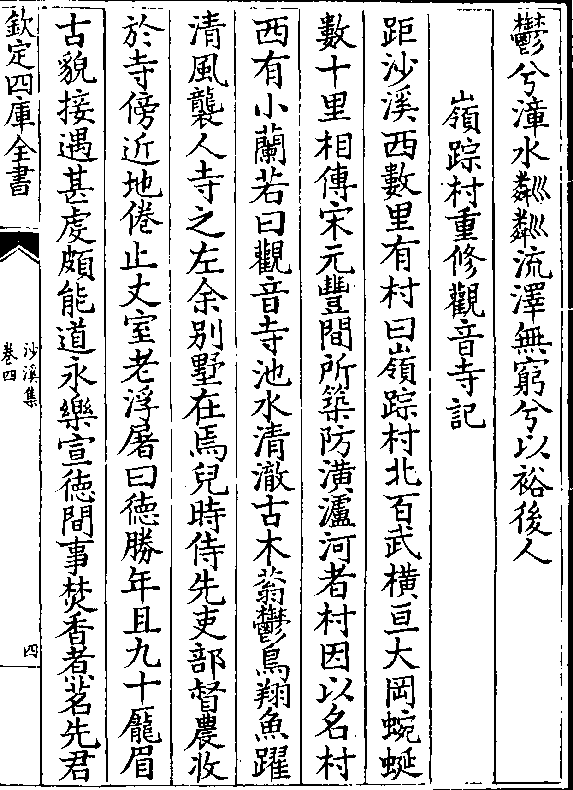 鬱兮漳水粼粼流澤無窮兮以裕後人
嶺踪村重修觀音寺記
距沙溪西數里有村曰嶺踪村北百武橫亘大岡蜿蜒
數十里相傳宋元豐間所築防潢瀘河者村因以名村
西有小蘭若曰觀音寺池水清澈古木蓊鬱鳥翔魚躍
清風襲人寺之左余别墅在焉兒時侍先吏部督農收
於寺傍近地倦止丈室老浮屠曰徳勝年且九十龎眉
古貌接遇甚虔頗能道永樂宣徳間事焚香煮茗先君
欽定四庫全書
沙溪集
卷四
四